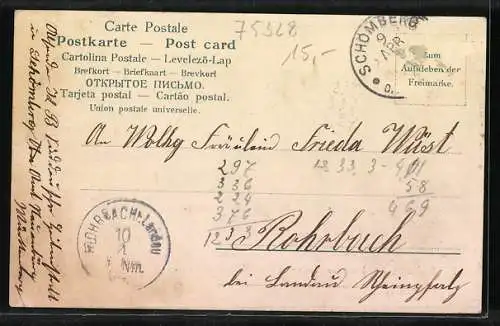 Carte Postale
Postkarte — Post card
Cartolina Postale — Levelező-Lap
Brefkort — Briefkaart — Brevkort
ОТКРЫТОЕ ПИСЬМО.
Tarjeta postal — Cartão postal.
Union postale universelle.
75328
15,-
SCHÖMBERG
9
APR
Zum
Aufkleben der
Freimarke.
An Wohlg Fräulein Frieda Wüst
297
336
224
376
123
18 33. 3 - 401
58
469
Rohrbach
bei Landau Rheinpfalz
ROHRBACH b. Landau
10
4
Nm.
Absender
in Schömberg
Württemberg